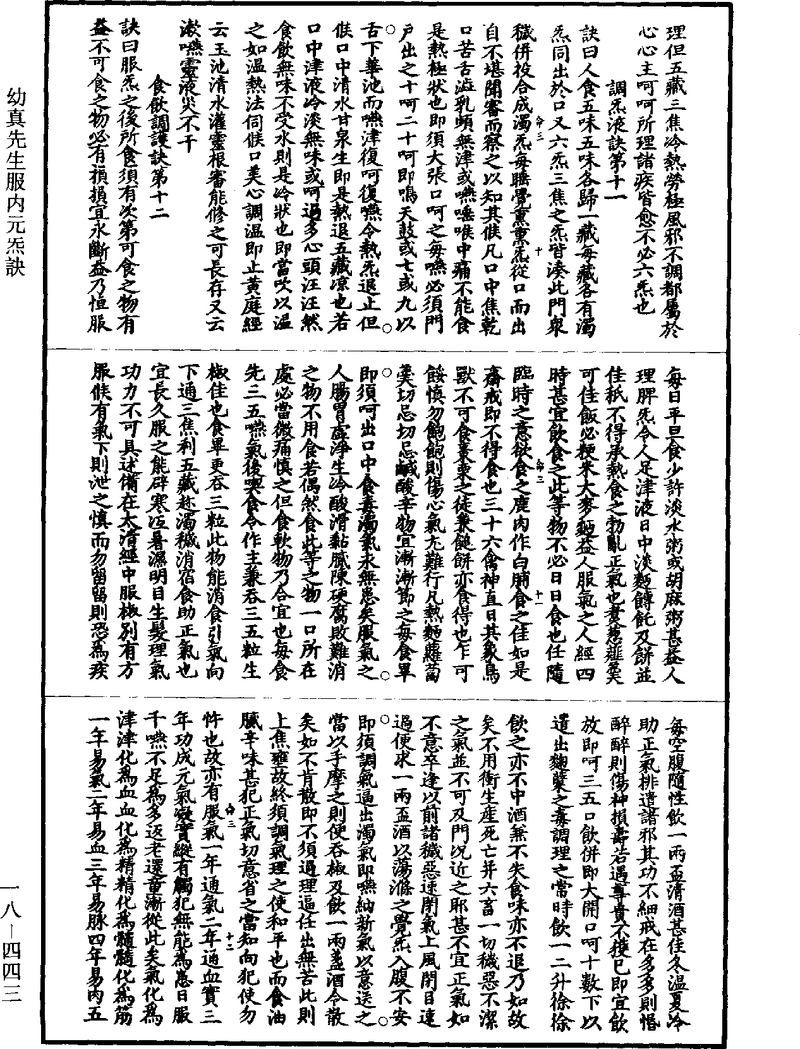 幼真先生服内元炁訣
理但五藏三焦冷熱勞極風邪不調都屬於
心心主呵呵所理諸疾皆愈不必六炁也
調炁液訣第十一
訣曰人食五味五味各歸一藏每藏各有濁
炁同出於口又六炁三焦之炁皆湊此門衆
穢併投合成濁炁每睡覺熏熏炁從口而出
自不堪聞審而察之以知其候凡口中焦乾
口苦舌澁乳頰無津或嚥唾喉中痛不能食
是熱極狀也即須大張口呵之每嚥必須門
戶出之十呵二十呵即鳴天鼓或七或九以
舌下華池而嚥津復呵復嚥令熱炁退止但
候口中清水甘泉生即是熱退五藏凉也若
口中津液冷淡無味或呵過多心頭汪汪然
食飲無味不受水則是冷狀也即當吹以温
之如温熱法伺候口美心調温即止黄庭經
云玉池清水灌靈根審能修之可長存又云
漱嚥靈液災不干
食飲調護訣第十二
訣曰服炁之後所食須有次第可食之物有
益不可食之物必有損損宜永斷益乃恒服
每日平旦食少許淡水粥或胡麻粥甚益人
理脾炁令人足津液日中淡麵餺飥及餅並
佳秖不得承熱食之勃亂正氣也煑葱薤羹
可佳飯必粳米大麥麵益人服氣之人經四
時甚宜飲食之此等物不必日日食也任隨
臨時之意欲食之鹿肉作白脯食之佳如是
齋戒即不得食也三十六禽神直日其象鳥
獸不可食棗栗之徒兼䭔餅亦食得也乍可
餒慎勿飽飽則傷心氣尤難行凡熱麵蘿蔔
羹切忌切忌鹹酸辛物宜漸漸節之每食畢
即須呵出口中食毒濁氣永無患矣服氣之
人腸胃虛淨生冷酸滑黏膩陳硬腐敗難消
之物不用食若偶然食此等之物一口所在
處必當微痛慎之但食軟物乃合宜也每食
先三五嚥氣後喫食令作主兼吞三五粒生
椒佳也食畢更吞三粒此物能消食引氣向
下通三焦利五藏趂濁穢消宿食助正氣也
宜長久服之能辟寒冱暑濕明目生髮理氣
功力不可具述備在太清經中服椒別有方
服候有氣下則泄之慎而勿留留則恐爲疾
每空腹隨性飲一兩盃清酒甚佳冬温夏冷
助正氣排遣諸邪其功不細戒在多多則惛
醉醉則傷神損壽若遇尊貴不獲已即宜飲
放即呵三五口飲併即大開口呵十數下以
遣出麴蘖之毒調理之當時飲一二升徐徐
飲之亦不中酒兼不失食味亦不退乃如故
矣不用衝生產死亡并六畜一切穢惡不潔
之氣並不可及門况近之耶甚不宜正氣如
不意卒逢以前諸穢惡速閉氣上風閉目速
過便求一兩盃酒以蕩滌之覺炁入腹不安
即須調氣逼出濁氣即嚥納新氣以意送之
當以手摩之則使吞椒及飲一兩盞酒令散
矣如不肯散即不須過理逼任出無苦此則
上焦壅故終須調氣理之使和平也而食油
膩辛味甚犯正氣切意省之當知向犯使勿
忤也故亦有服氣一年通氣二年通血實三
年功成元氣凝實縱有觸犯無能爲患日服
千嚥不足爲多返老還童漸從此矣氣化爲
津津化爲血血化爲精精化爲髓髓化爲筋
一年易氣二年易血三年易脉四年易肉五
一八-四四三